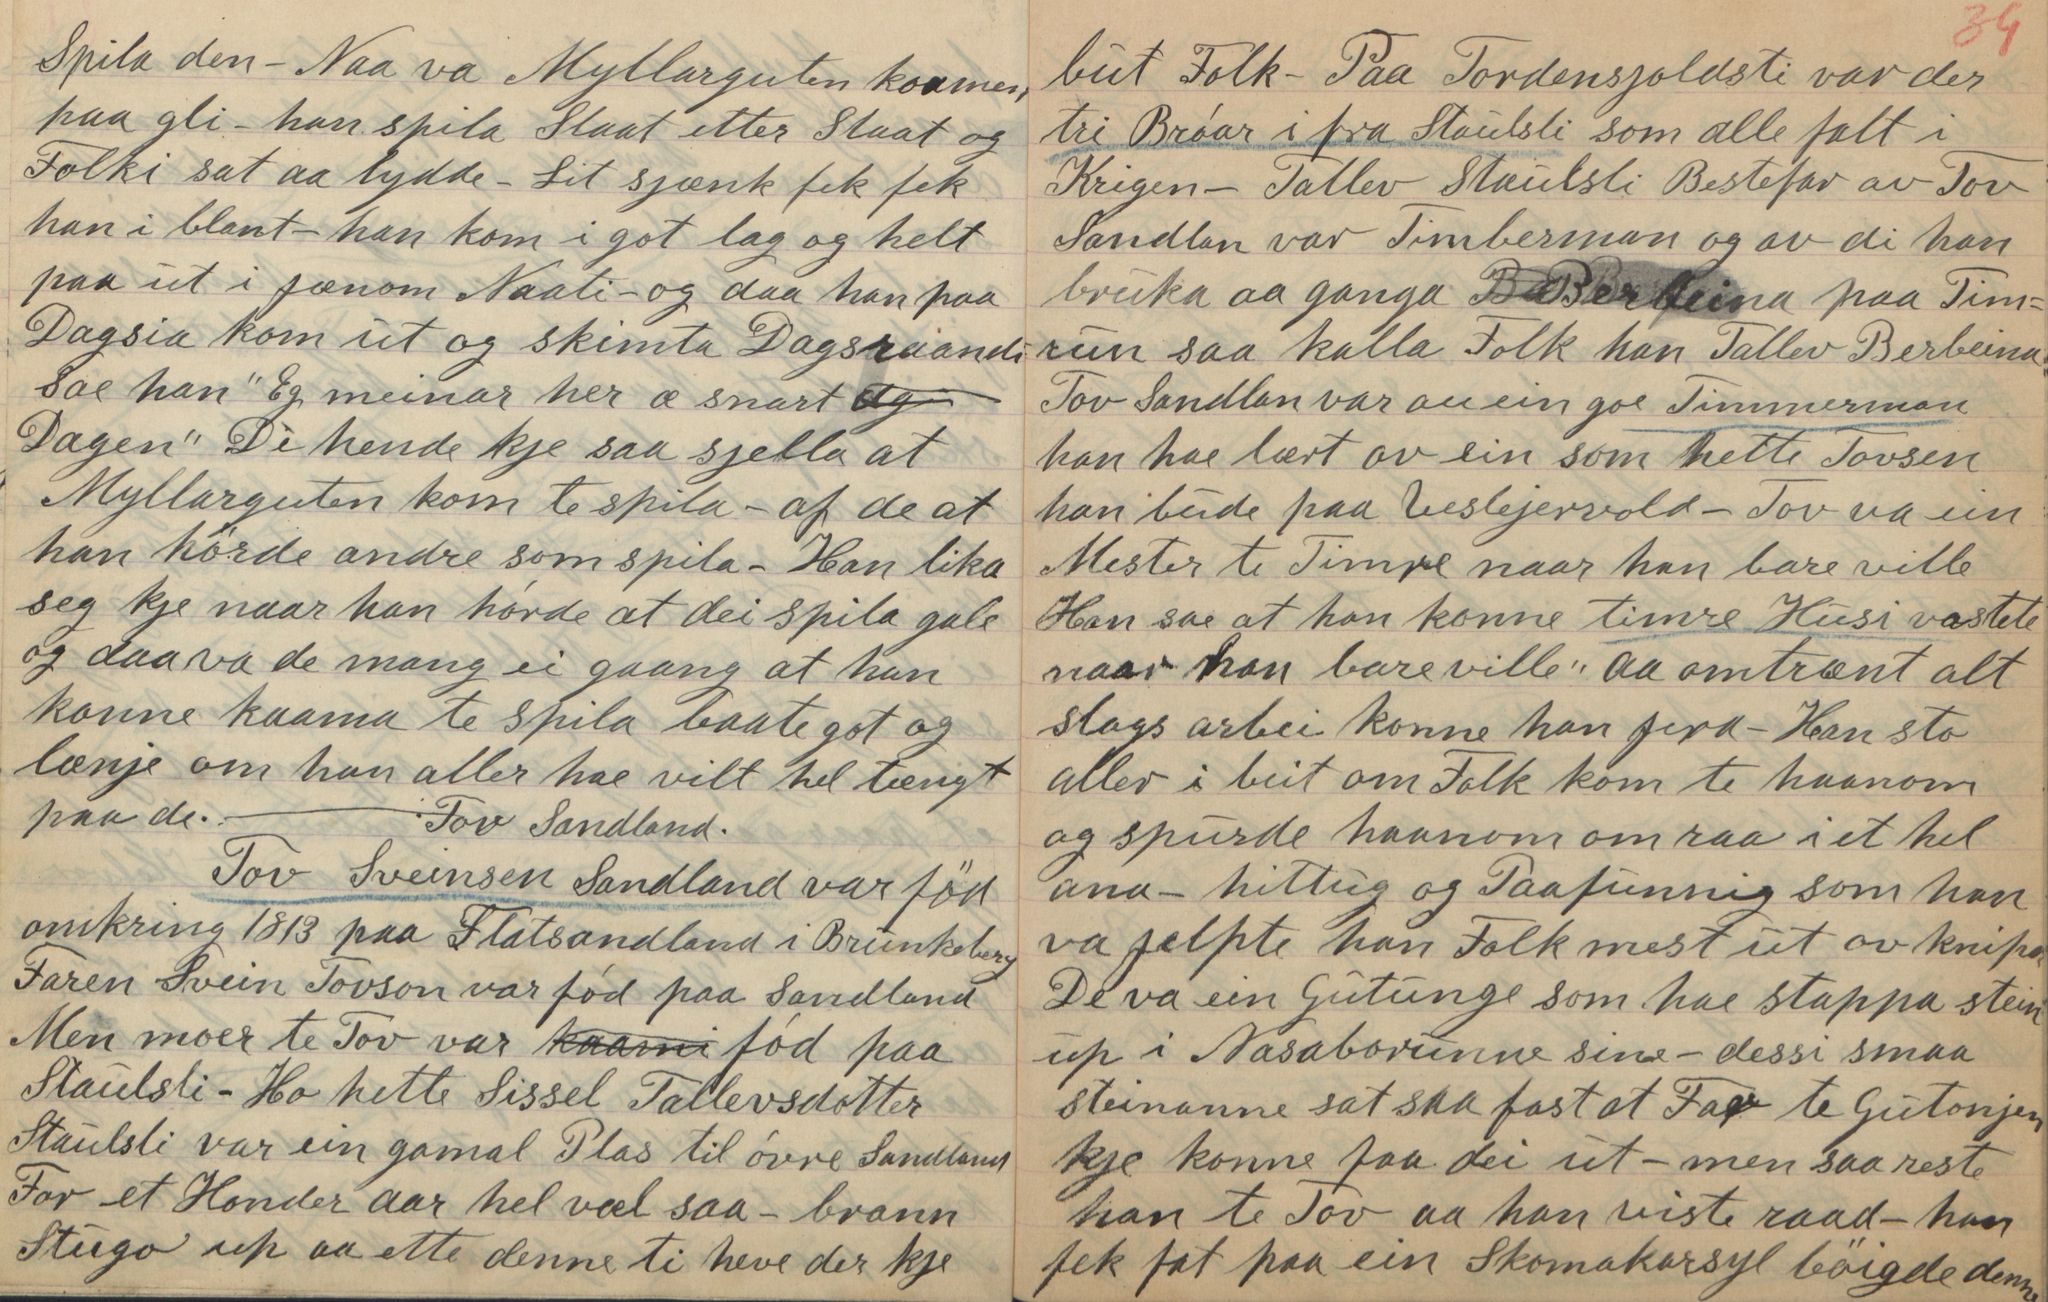 Spila den – Naa va Myllarguten koamen,
paa gli – han spila Slaat etter Slaat og
Folki sat aa lydde – Lit sjænk fek fek
han i blant – han kom i got lag og helt
paa ut i jænom Naati – og daa han paa
Dagsia kom ut og skimta Dagsraandi
Sae han "Eg meinar her æ snart
Dagen" Di hende kje saa sjella at
Myllarguten kom te spila – af de at
han hórde andre som spila – Han lika
seg kje naar han hórde at dei spila gale
og daa va de mang ei gaang at han
konne kaama te spila baate got og
lænje om han aller hae vilt hel tængt
paa de. ——— Tov Sandland.
Tov Sveinsen Sandland var föd
omkring 1813 paa Flatsandland i Brunkeberg
Faren Svein Tovson var fód paa Sandland
Men moer te Tov var kaami fód paa
Staulsli – Ho hette Sissel Tallevsdotter
Staulsli var ein gamal Plas til óvre Sandland
For et Honder aar hel væl saa – brann
Stugo up aa ette denne ti heve der kje
34
but Folk – Paa Tordensjoldsti var der
tri Bróar i fra Staulsli som alle falt i
Krigen – Tallev Staulsli Bestefar av Tov
Sandlan var Timberman og av di han
bruka aa ganga Berbeina paa Tim=
run saa kalla Folk han Tallev Berbeina.
Tov Sandlan var au ein goe Timmerman
han hae lært av ein som hette Tovsen
han bude paa Veslejervold – Tov va ein
Mester te Timre naar han bare ville
Han sae at han konne timre Husi vastete
naar han bare ville" aa omtrænt alt
slags arbei konne han jera – Han sto
aller i beit om Folk kom te haanom
og spurde haanom om raa i et hel
ana – hittug og Paafunnig som han
va jelpte han Folk mest ut av knipa
De va ein Gutunge som hae stappa stein
up i Nasaborunne sine – dessi smaa
steinanne sat saa fast at Far te Gutonjen
kje konne faa dei ut – men saa reste
han te Tov aa han viste raad – han
fek fat paa ein Skomakarsyl böigde denne